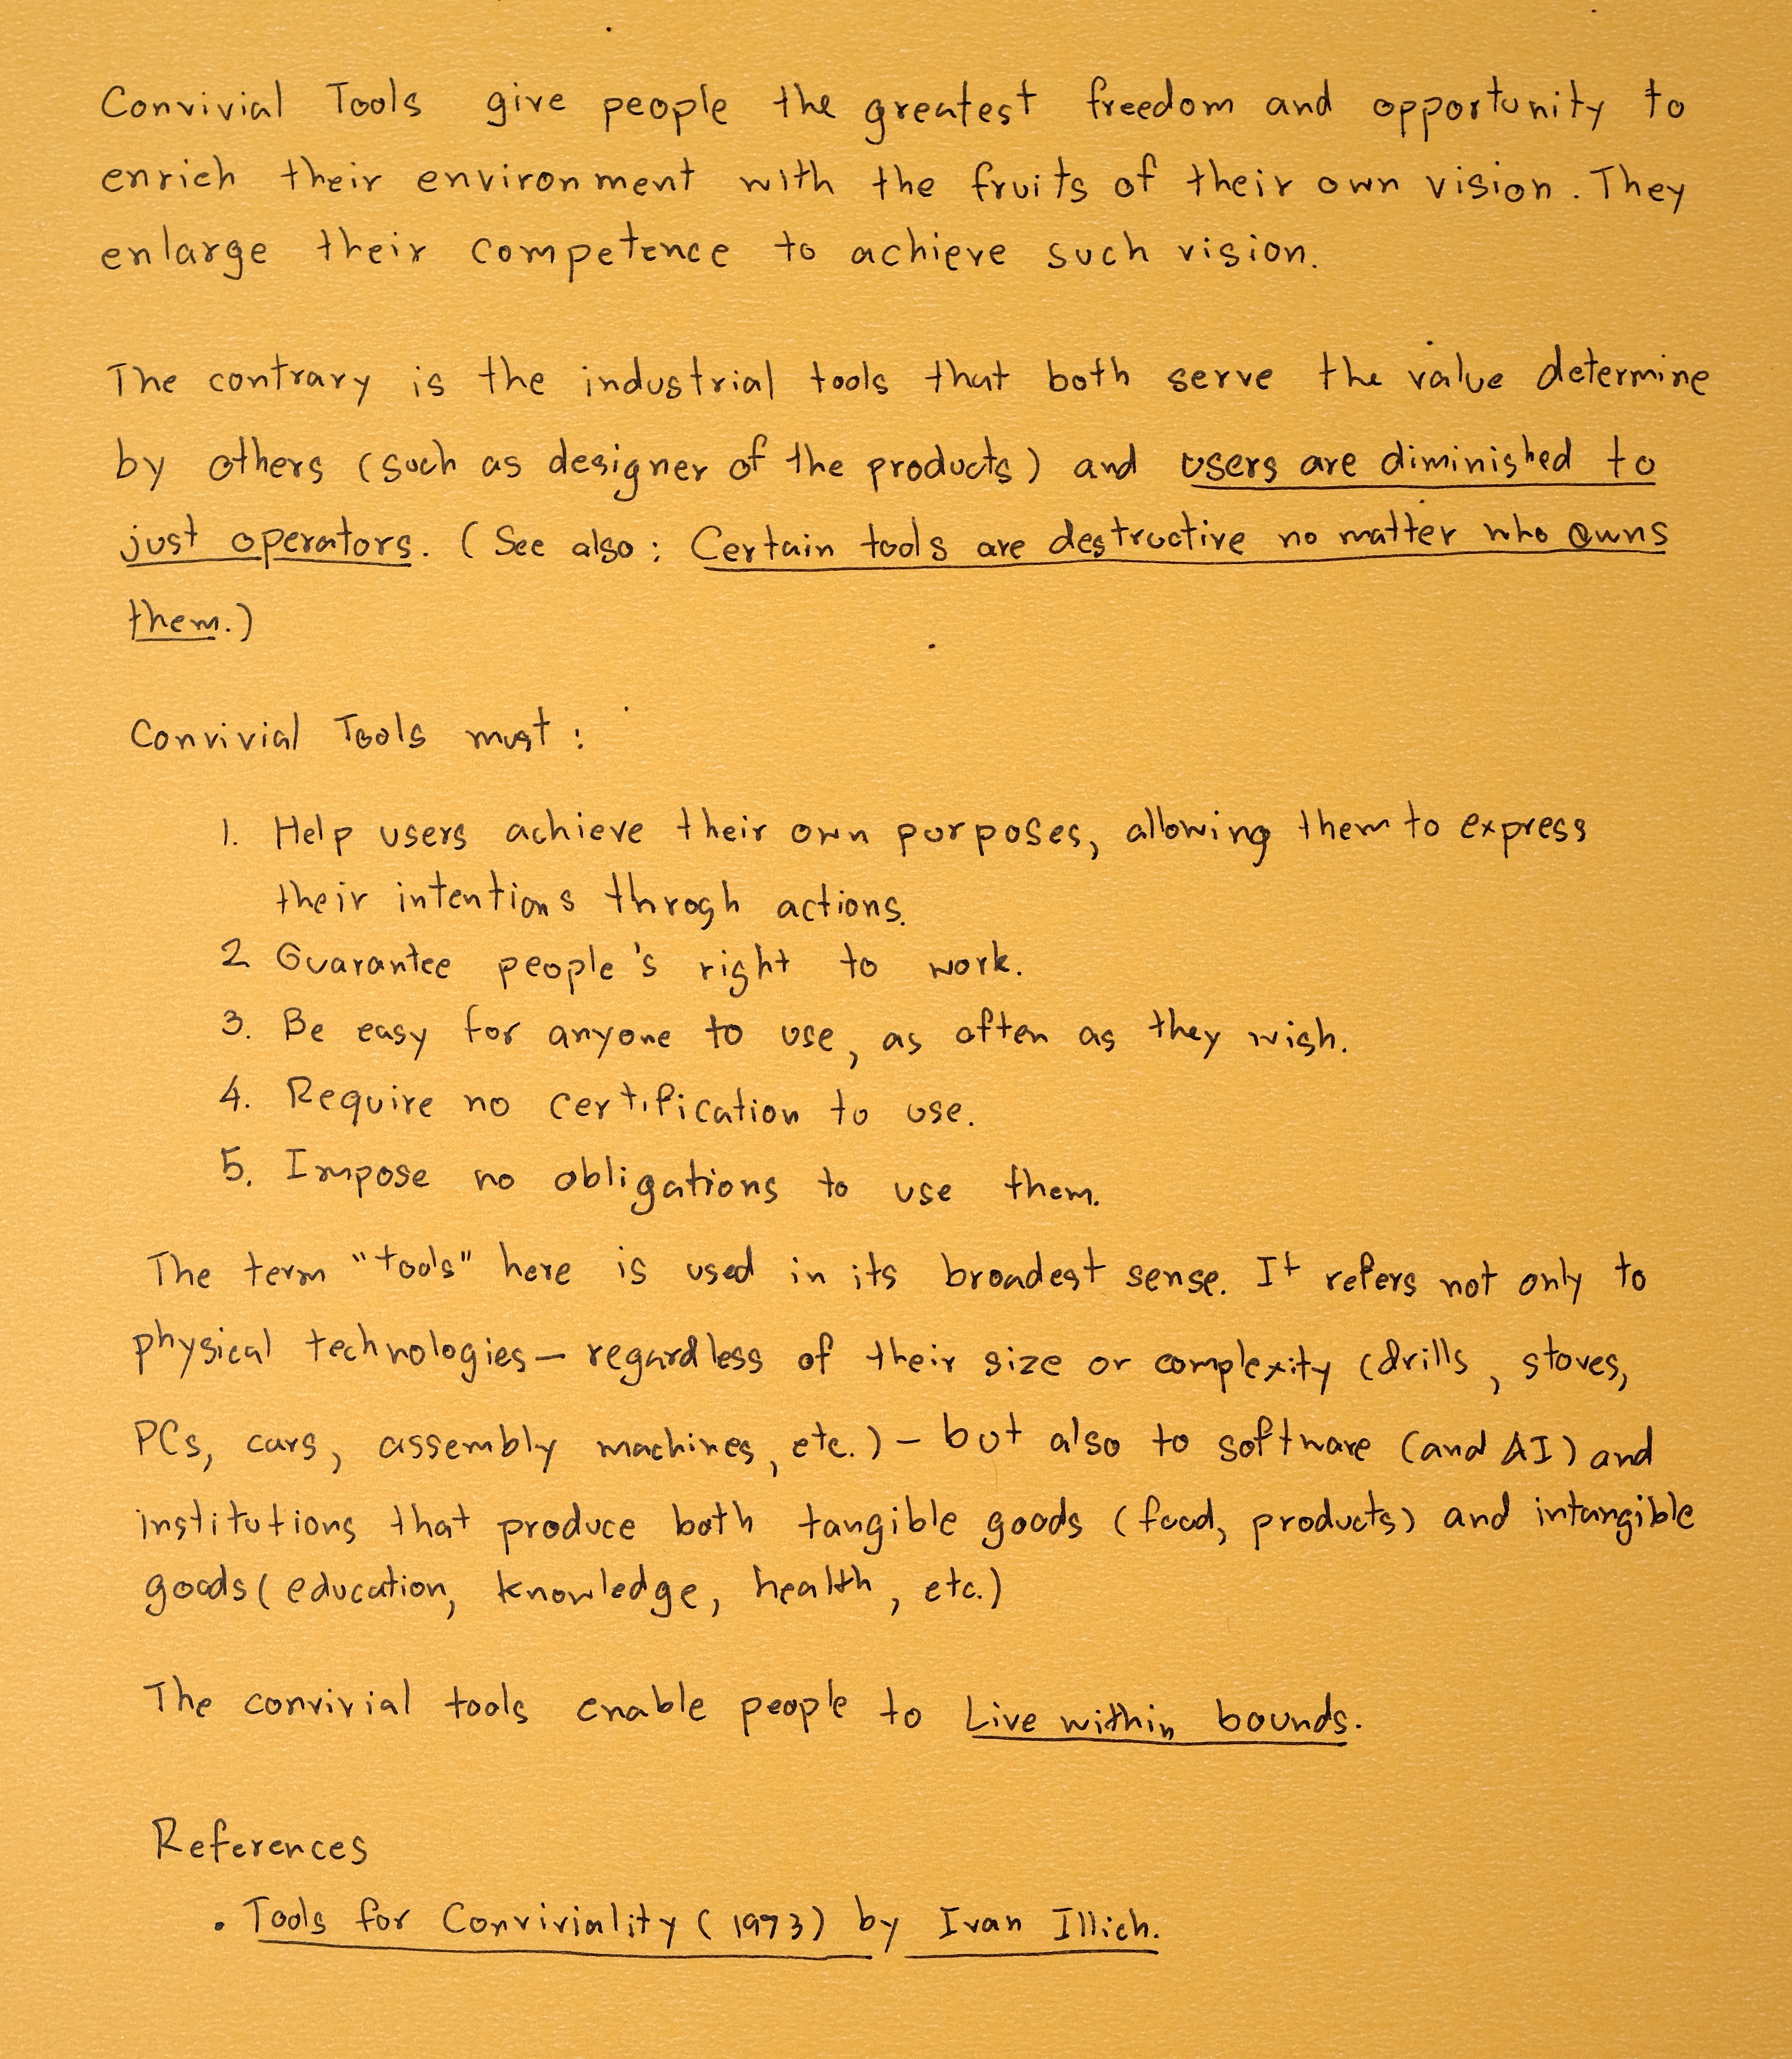 Convivial Tools give people the greatest freedom and opportunity to
enrich their environment with the fruits of their own vision. They
enlarge their competence to achieve such vision.
The contrary is the industrial tools that both serve the value determine
by others (such as designer of the products) and users are diminished to
just operators. (See also: Certain tools are destructive no matter who owns
them.)
Convivial Tools must:
1. Help users achieve their own purposes, allowing them to express
their intentions throgh actions.
2 Guarantee people's right to work.
3. Be easy for anyone to use, as often as they wish.
4. Require no certification to use.
5. Impose no obligations to use them.
The term "tools" here is used in its broadest sense. It refers not only to
physical technologies — regardless of their size or complexity (drills, stoves,
PCs, cars, assembly machines, etc.) — but also to software (and AI) and
institutions that produce both tangible goods (food, products) and intangible
goods (education, knowledge, health, etc.)
The convivial tools enable people to Live within bounds.
References
• Tools for Conviviality (1973) by Ivan Illich.